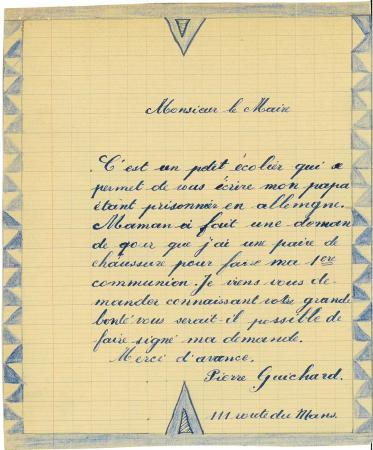 Monsieur le Maire
C'est un petit écolier qui se
permet de vous écrire mon papa
étant prisonnier en allemgne.
Maman a fait une deman
de pour que j'ai une paire de
chaussure pour faire ma 1ère
communion. Je viens vous de-
mander connaissant votre grande
bonté vous serait-il possible de
faire signé ma demande.
Merci d'avance.
Pierre Guichard.
111 route du Mans.